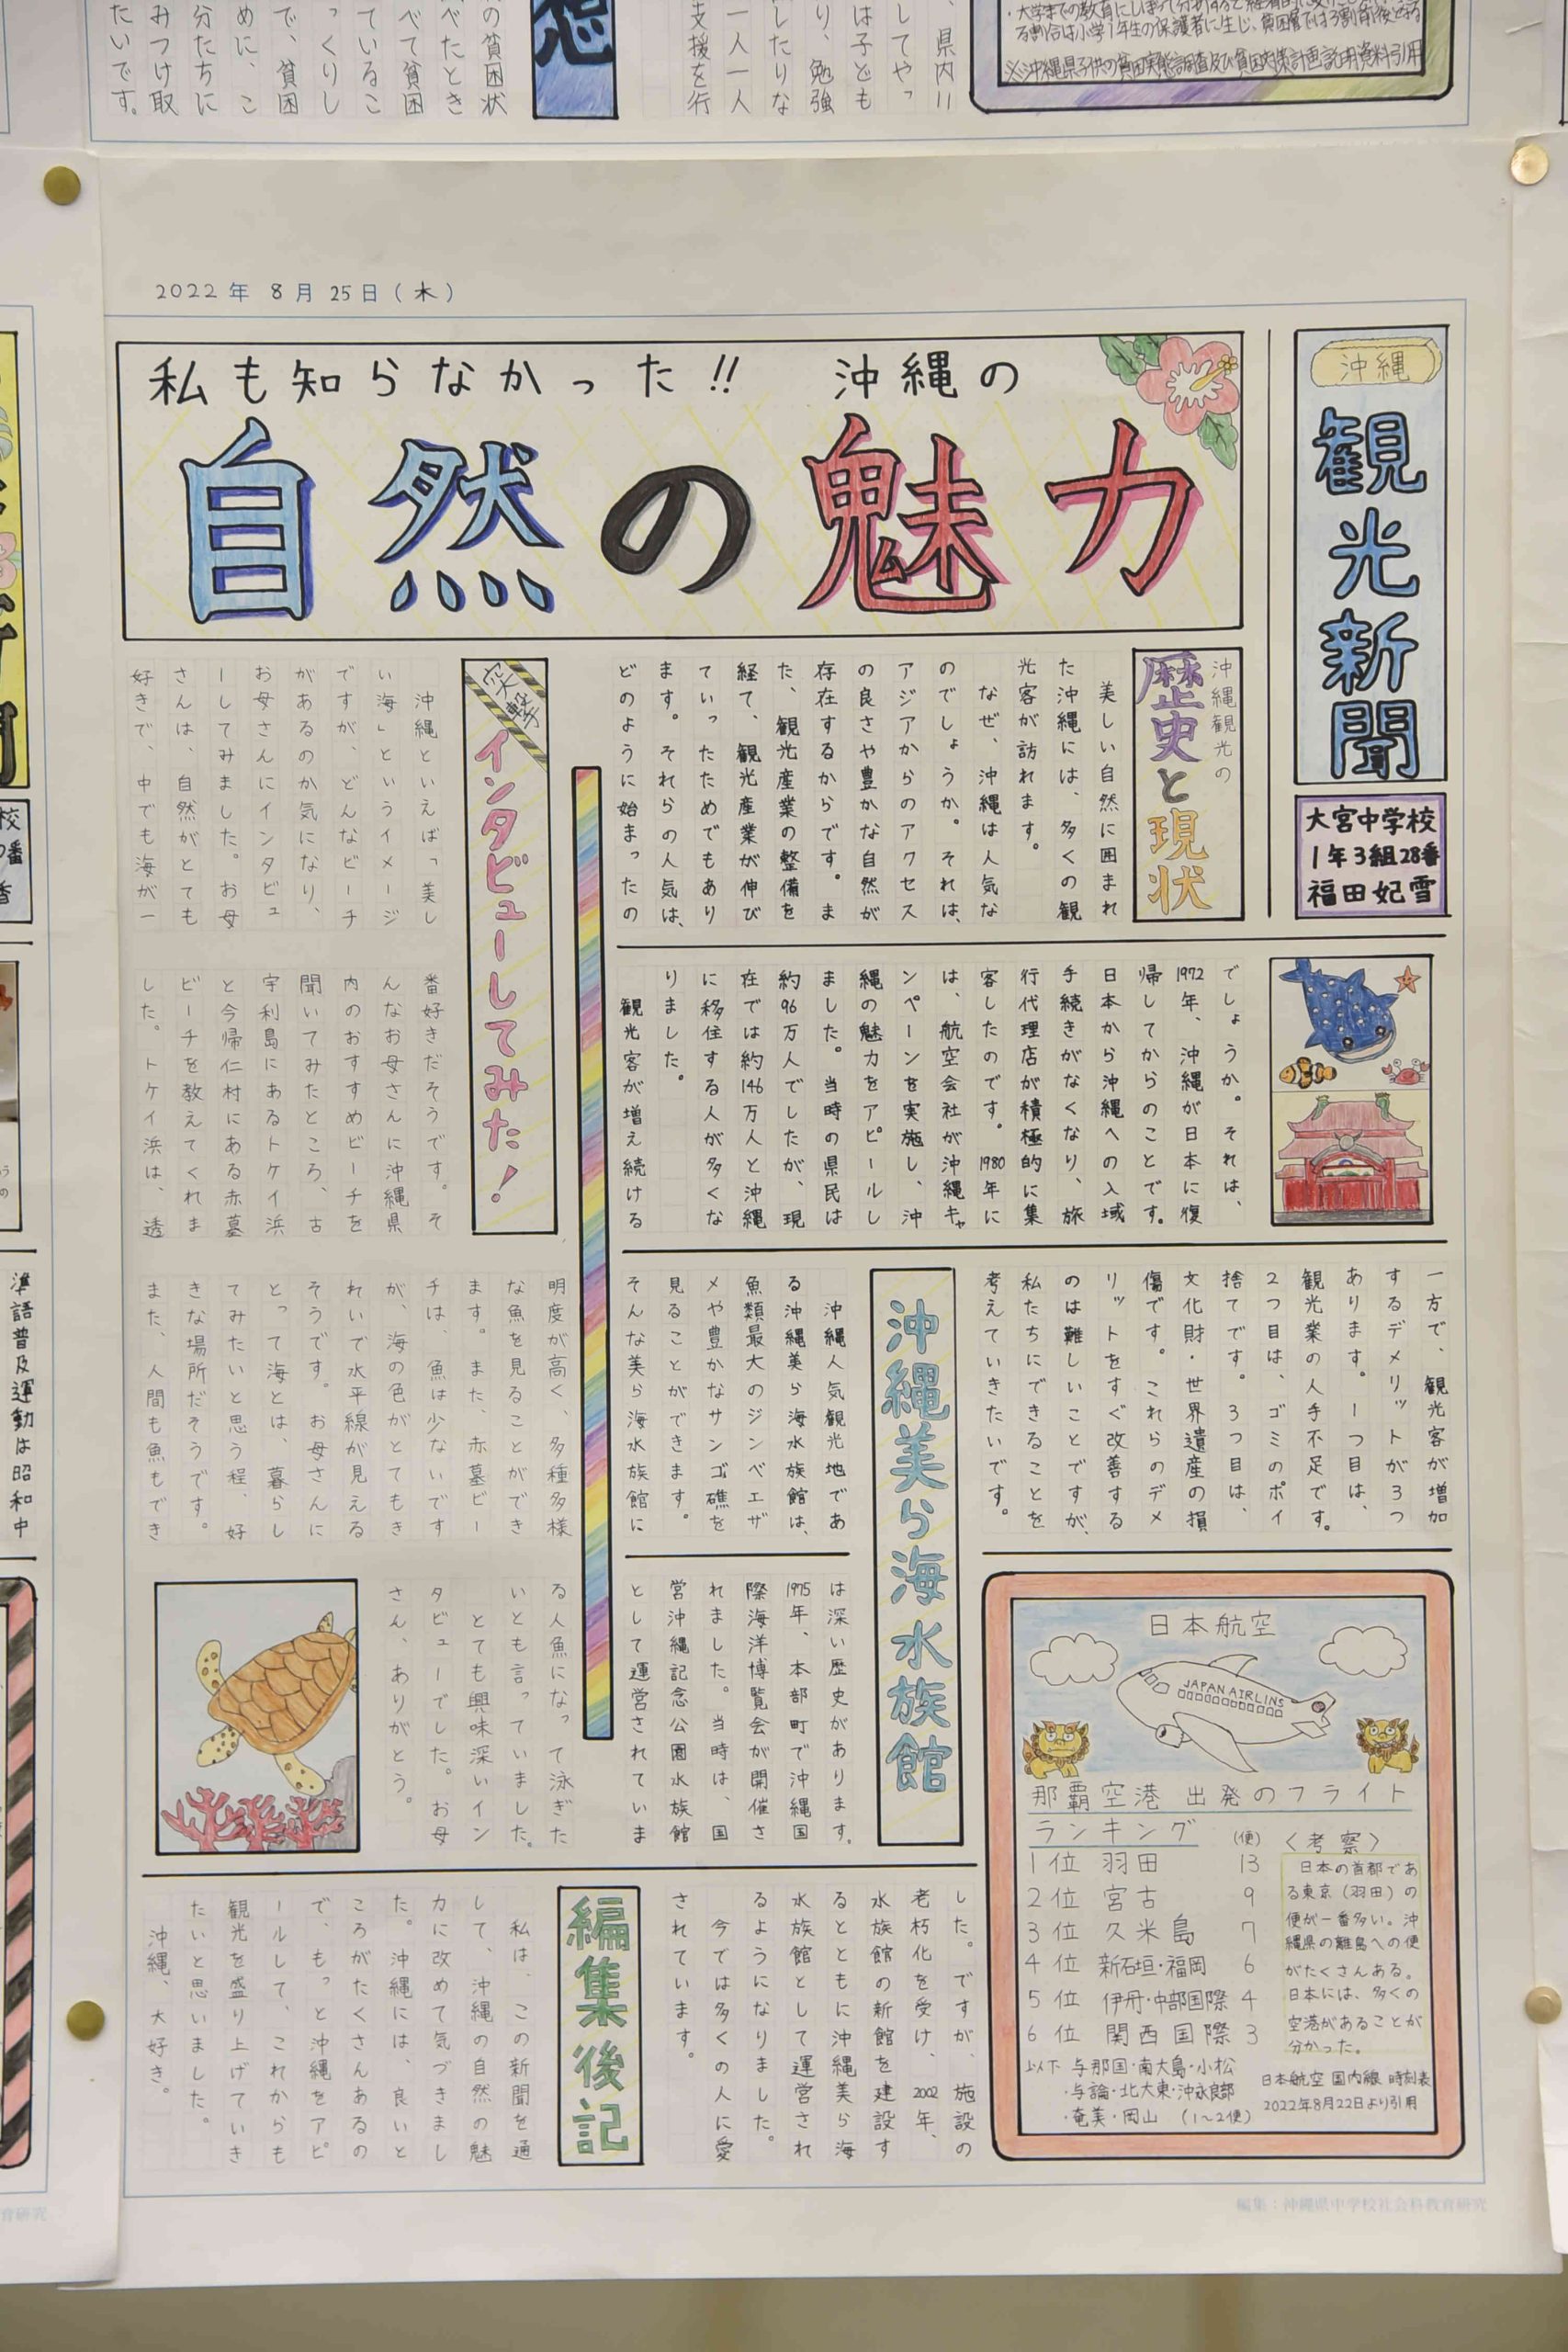 の貧困状
べたとき
べて貧困
ているこ
っくりし
で、貧困
めに、こ
分たちに
みつけ取
たいです。
想
、県内11
してやっ
は子ども
り、勉強
したりな
一人一人
支援を行
る割合は小学1年生の保護者に生じ、貧困層では3割前後となる
※沖縄県子供の貧困実態調査及び貧困対策計画説明資料引用
2022年 8月 25日(木)
沖縄
観光新聞
大宮中学校
1年3組28番
福田妃雪
私も知らなかった!! 沖縄の
自然の魅力
沖縄観光の
歴史と現状
美しい自然に囲まれ
た沖縄には、多くの観
光客が訪れます。
なぜ、沖縄は人気な
のでしょうか。それは、
アジアからのアクセス
の良さや豊かな自然が
存在するからです。ま
た、観光産業の整備を
経て、観光産業が伸び
ていったためでもあり
ます。それらの人気は、
どのように始まったの
でしょうか。それは、
1972年、沖縄が日本に復
帰してからのことです。
日本から沖縄への入域
手続きがなくなり、旅
行代理店が積極的に集
客したのです。1980年に
は、航空会社が沖縄キャ
ンペーンを実施し、沖
縄の魅力をアピールし
ました。当時の県民は
約96万人でしたが、現
在では約146万人と沖縄
に移住する人が多くな
りました。
観光客が増え続ける
一方で、観光客が増加
するデメリットが3つ
あります。1つ目は、
観光業の人手不足です。
2つ目は、ゴミのポイ
捨てです。3つ目は、
文化財・世界遺産の損
傷です。これらのデメ
リットをすぐ改善する
のは難しいことですが、
私たちにできることを
考えていきたいです。
沖縄美ら海水族館
沖縄人気観光地であ
る沖縄美ら海水族館は、
魚類最大のジンベエザ
メや豊かなサンゴ礁を
見ることができます。
そんな美ら海水族館に
は深い歴史があります。
1975年、本部町で沖縄国
際海洋博覧会が開催さ
れました。当時は、国
営沖縄記念公園水族館
として運営されていま
した。ですが、施設の
老朽化を受け、2002年、
水族館の新館を建設す
るとともに沖縄美ら海
水族館として運営され
るようになりました。
今では多くの人に愛
されています。
突撃
インタビューしてみた!
沖縄といえば「美し
い海」というイメージ
ですが、どんなビーチ
があるのか気になり、
お母さんにインタビュ
ーしてみました。お母
さんは、自然がとても
好きで、中でも海が一
番好きだそうです。そ
んなお母さんに沖縄県
内のおすすめビーチを
聞いてみたところ、古
宇利島にあるトケイ浜
と今帰仁村にある赤墓
ビーチを教えてくれま
した。トケイ浜は、透
明度が高く、多種多様
な魚を見ることができ
ます。また、赤墓ビー
チは、魚は少ないです
が、海の色がとてもき
れいで水平線が見える
そうです。お母さんに
とって海とは、暮らし
てみたいと思う程、好
きな場所だそうです。
また、人間も魚もでき
る人魚になって泳ぎた
いとも言っていました。
とても興味深いイン
タビューでした。お母
さん、ありがとう。
編集後記
私は、この新聞を通
して、沖縄の自然の魅
力に改めて気づきまし
た。沖縄には、良いと
ころがたくさんあるの
で、もっと沖縄をアピ
ールして、これからも
観光を盛り上げていき
たいと思いました。
沖縄、大好き。
日本航空
JAPAN AIRLINS
那覇空港 出発のフライト
ランキング (便)
1位 羽田 13
2位 宮古 9
3位 久米島 7
4位 新石垣・福岡 6
5位 伊丹・中部国際 4
6位 関西国際 3
以下 与那国・南大島・小松
・与論・北大東・沖永良部
・奄美・岡山 (1〜2便)
〈考察〉
日本の首都であ
る東京(羽田)の
便が一番多い。沖
縄県の離島への便
がたくさんある。
日本には、多くの
空港があることが
分かった。
日本航空 国内線 時刻表
2022年8月22日より引用
編集:沖縄県中学校社会科教育研究
準語普及運動は昭和中
育研究